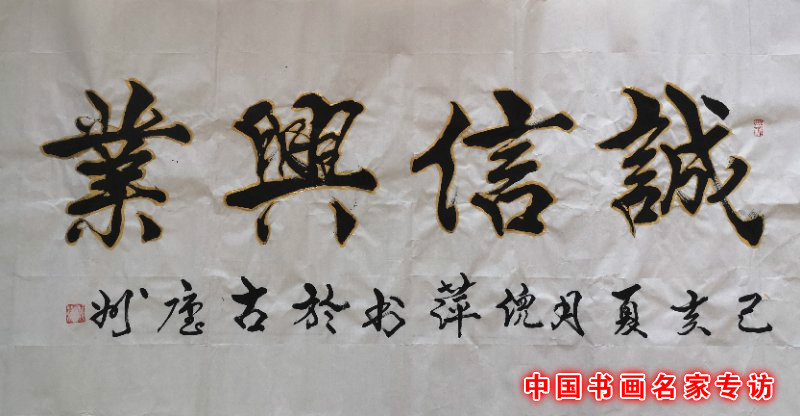 誠信興業
己亥夏月倪萍书於古廬州
中国书画名家专访